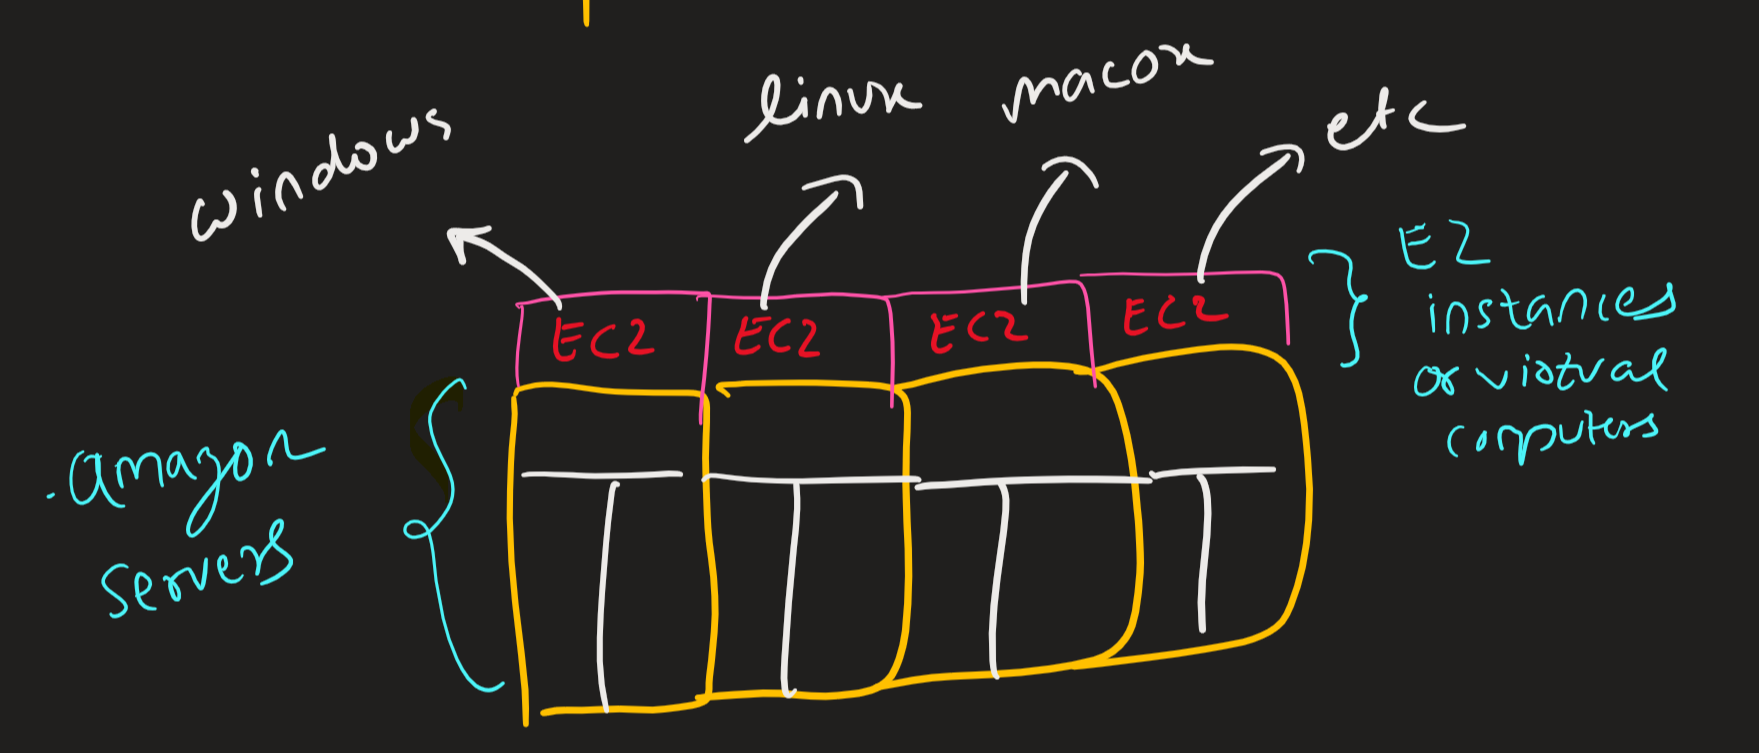 windows
linux
macox
etc
EC2
EC2
EC2
EC2
E2
instances
or virtual
computers
amazon
servers